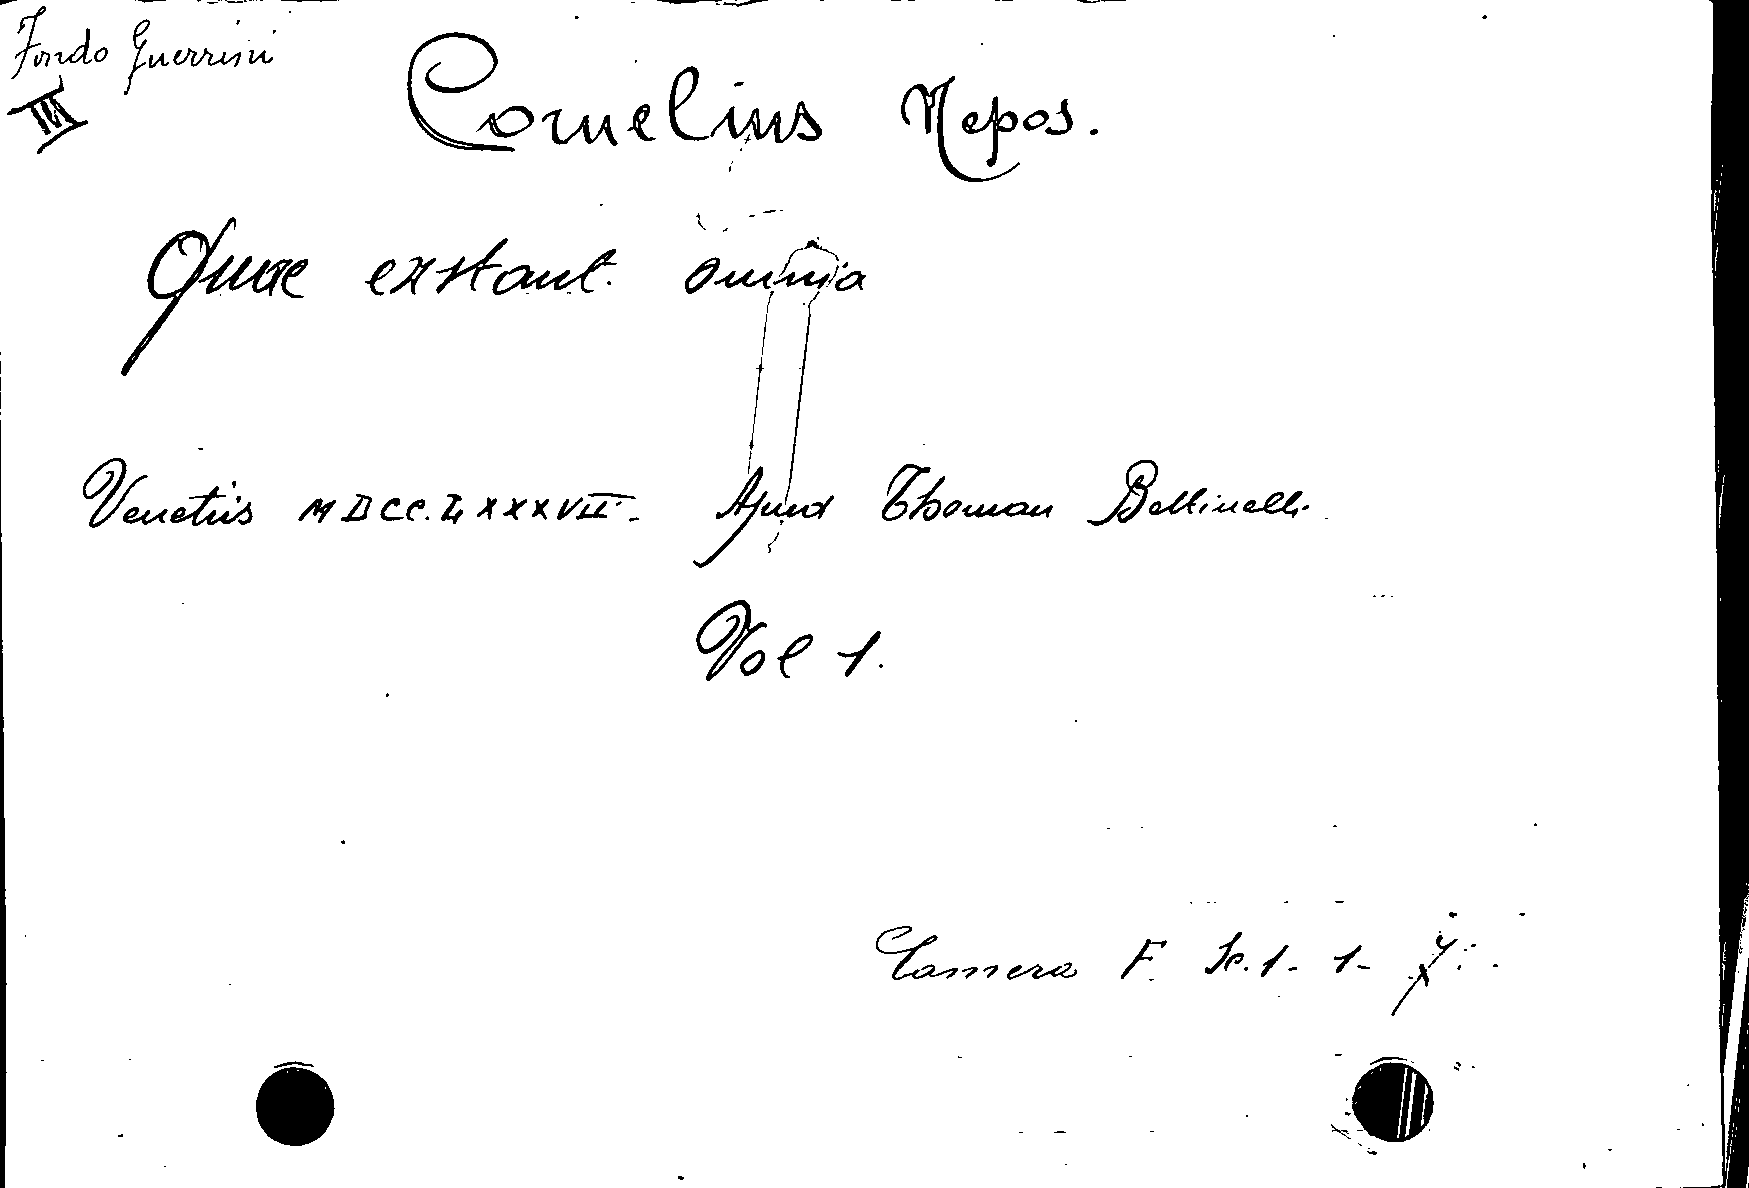 Fondo Guerrini
III
Cornelius Nepos.
Quae exstant omnia
Venetiis MDCC.LXXXVII. Apud Thoman Bettinelli.
Vol 1.
Camera F. Sc. 1. 1- 7.